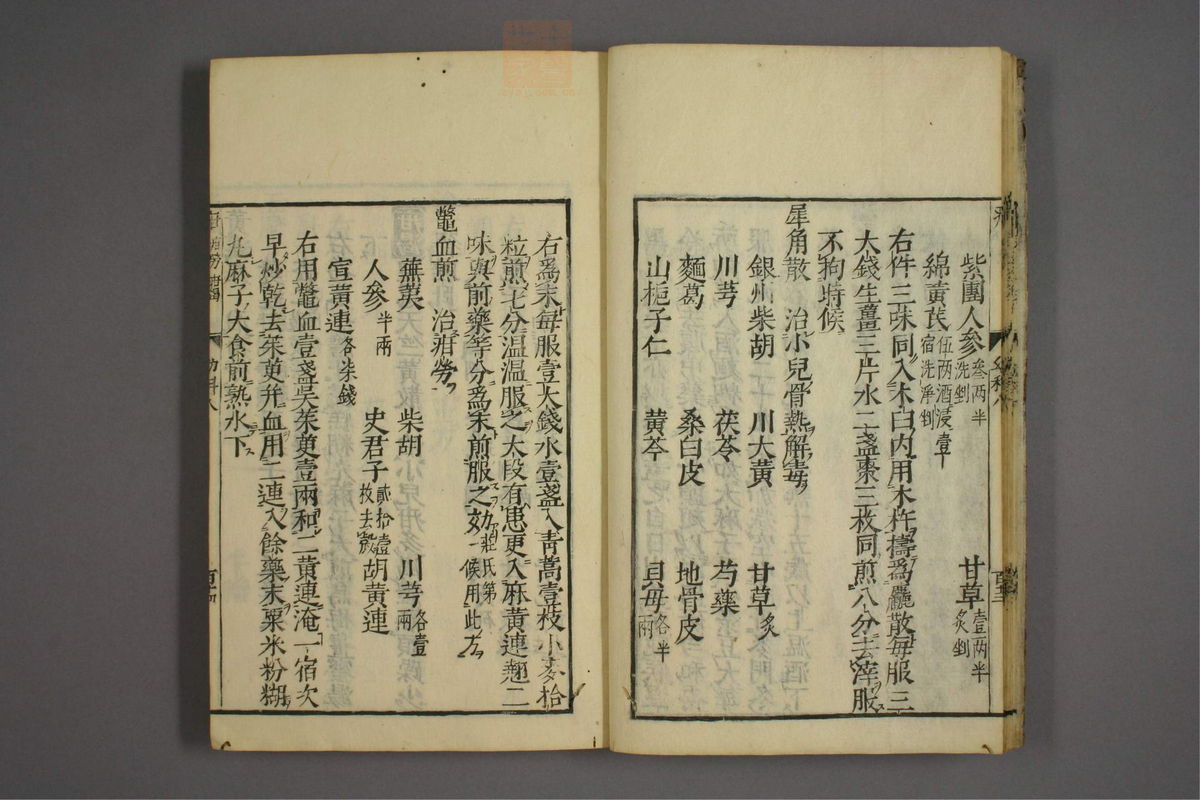 紫團人參叁两半洗剉 甘草壹两半炙剉
綿黃芪伍两酒浸壹宿洗淨剉
右件三味同入木臼内用木杵擣爲麤散每服三
大錢生薑三片水二盞棗三枚同煎八分去滓服
不狗時候
犀角散 治小兒骨熱解毒
銀州柴胡 川大黃 甘草炙
川芎 茯苓 芍藥
麵葛 桑白皮 地骨皮
山梔子仁 黃芩 貝母各半兩
右爲末每服壹大錢水壹盞入青蒿壹枝小麥拾
粒煎七分温温服之大段有患更入麻黃連翹二
味與前藥等分爲末煎服之効莊氏第一候用此方
鼈血煎 治疳勞
蕪荑 柴胡 川芎各壹兩
人參半兩 史君子貳拾壹枚去殼 胡黃連
宣黃連各柒錢
右用鼈血壹盞吳茱萸壹兩和二黃連淹一宿次
早炒乾去茱萸并血用二連入餘藥末粟米粉糊
丸麻子大食前熟水下